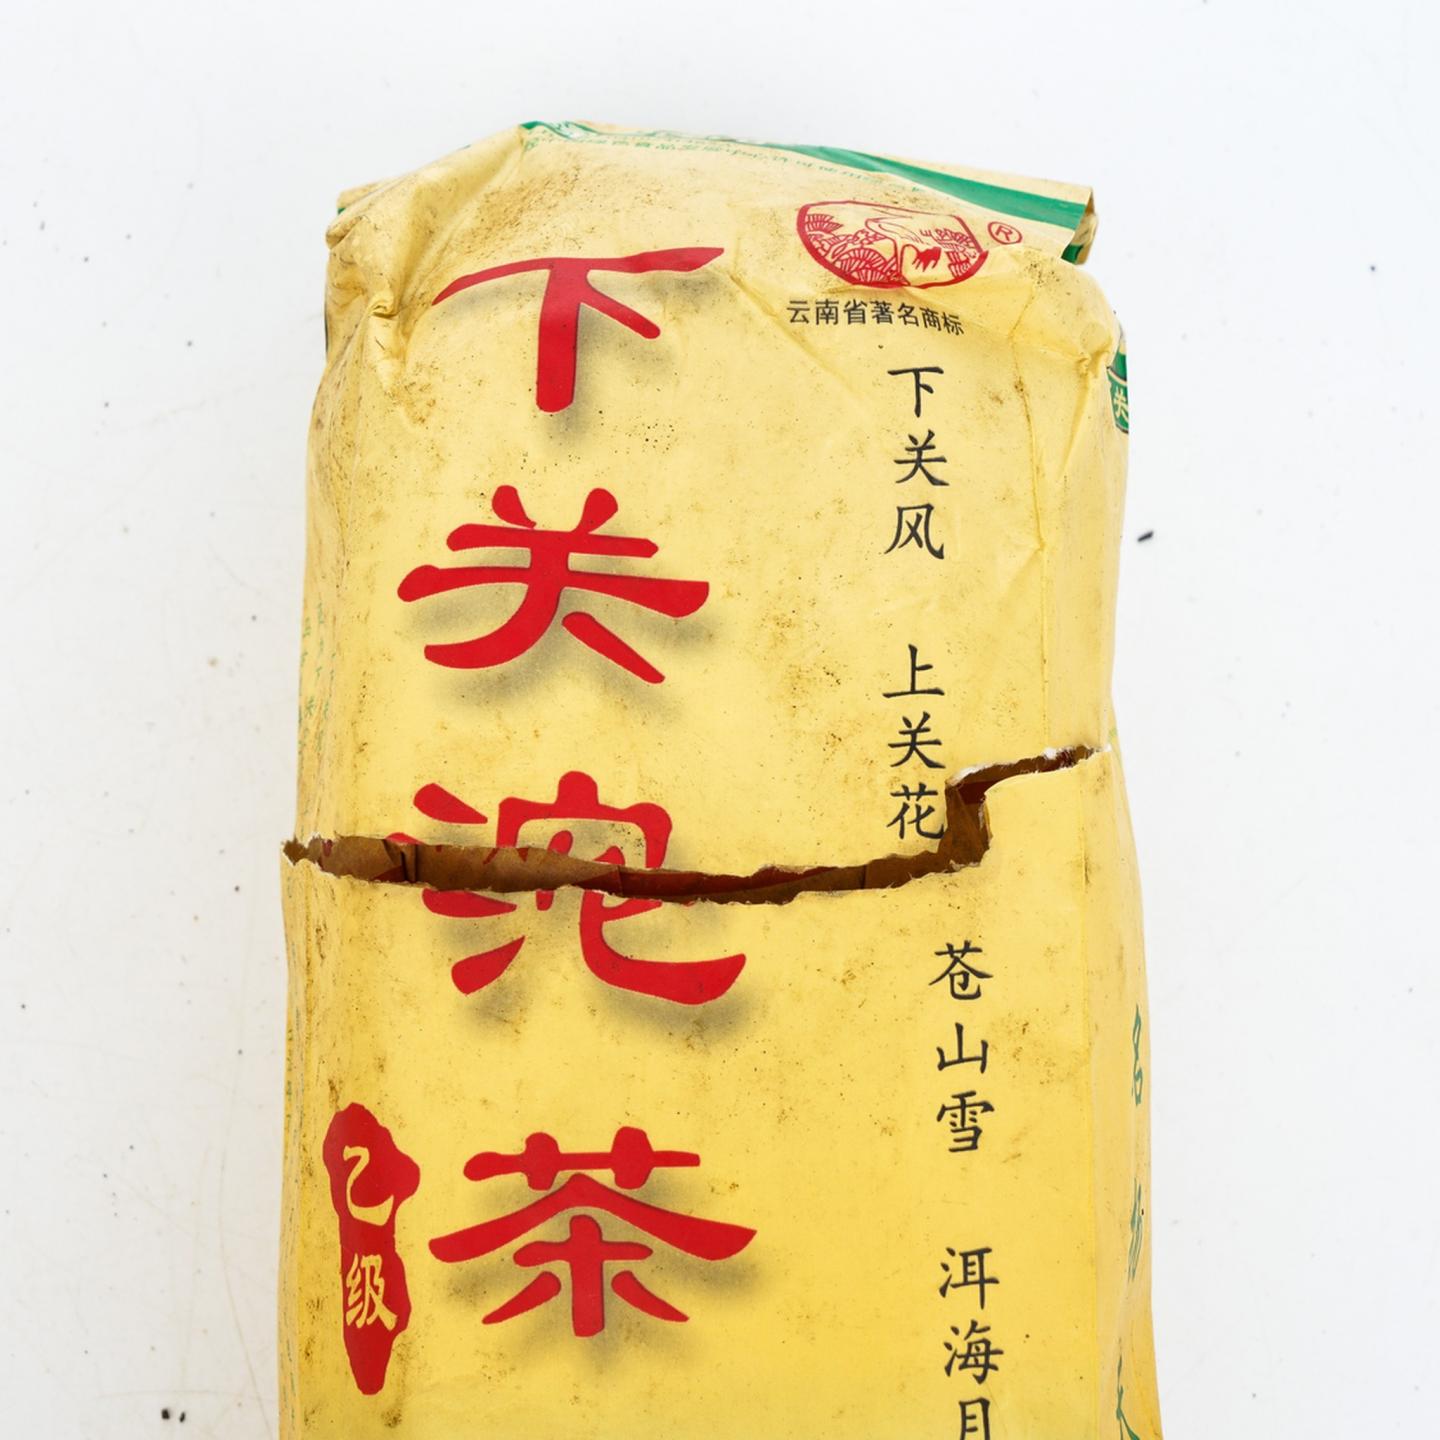 云南省著名商标
下关沱茶
乙级
下关风
上关花
苍山雪
洱海月
关
名